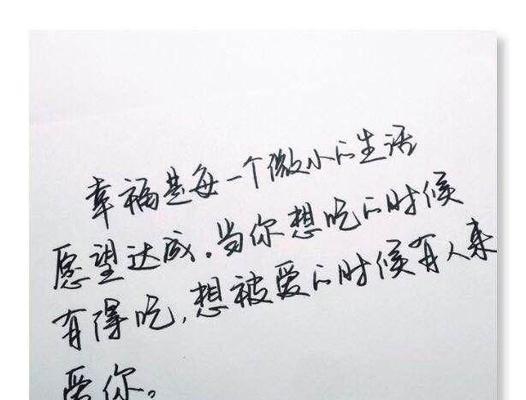 幸福是每一个微小的生活
愿望达成。当你想吃的时候
有得吃,想被爱的时候有人来
爱你。